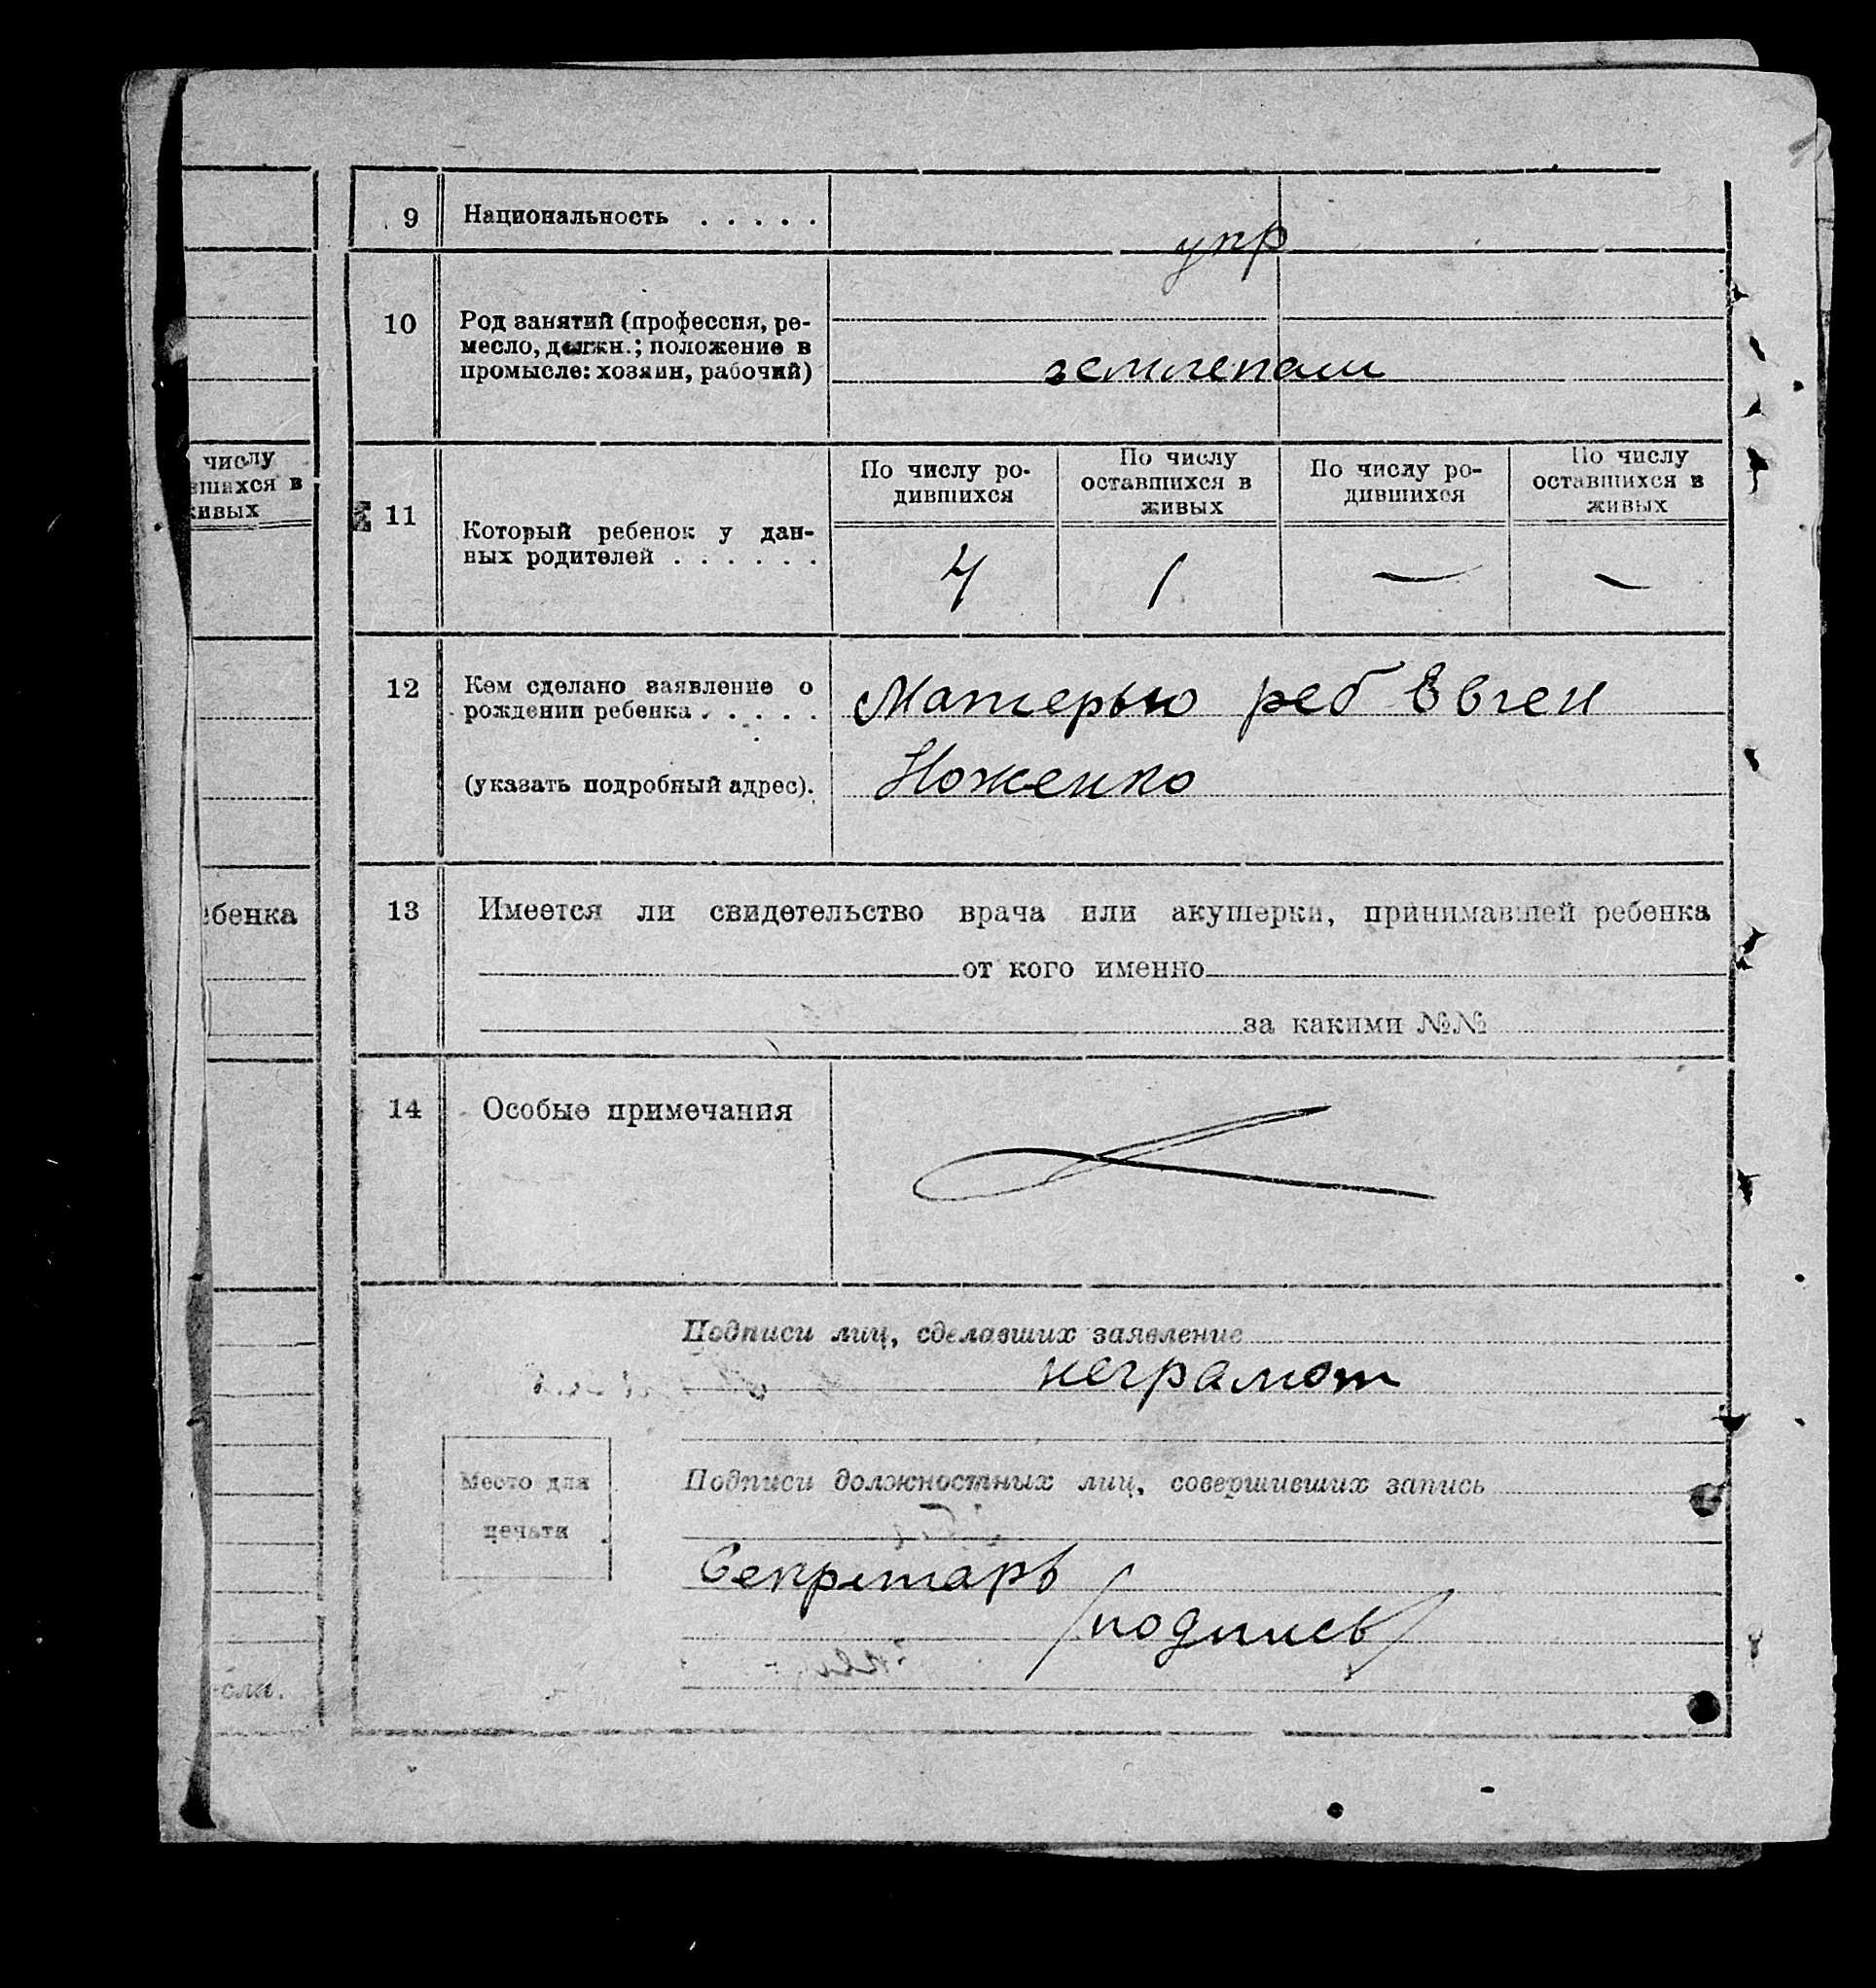 числу
вшихся в
живых
ебенка
-сли.
9 Национальность . . . . .
укр
10 Род занятий (профессия, ре-
месло, должн.; положение в
промысле: хозяин, рабочий)
землепаш
По числу ро-
дившихся
По числу
оставшихся в
живых
По числу ро-
дившихся
По числу
оставшихся в
живых
11 Который ребенок у дан-
ных родителей . . . . . .
4 1 — —
12 Кем сделано заявление о
рождении ребенка . . . . .
Матерью реб Евген
(указать подробный адрес).
Ноженко
13 Имеется ли свидетельство врача или акушерки, принимавшей ребенка
от кого именно
за какими №№
14 Особые примечания
Подписи лиц, сделавших заявление
неграмот
Место для
печати
Подписи должностных лиц, совершивших запись
Секретарь
/подпись/